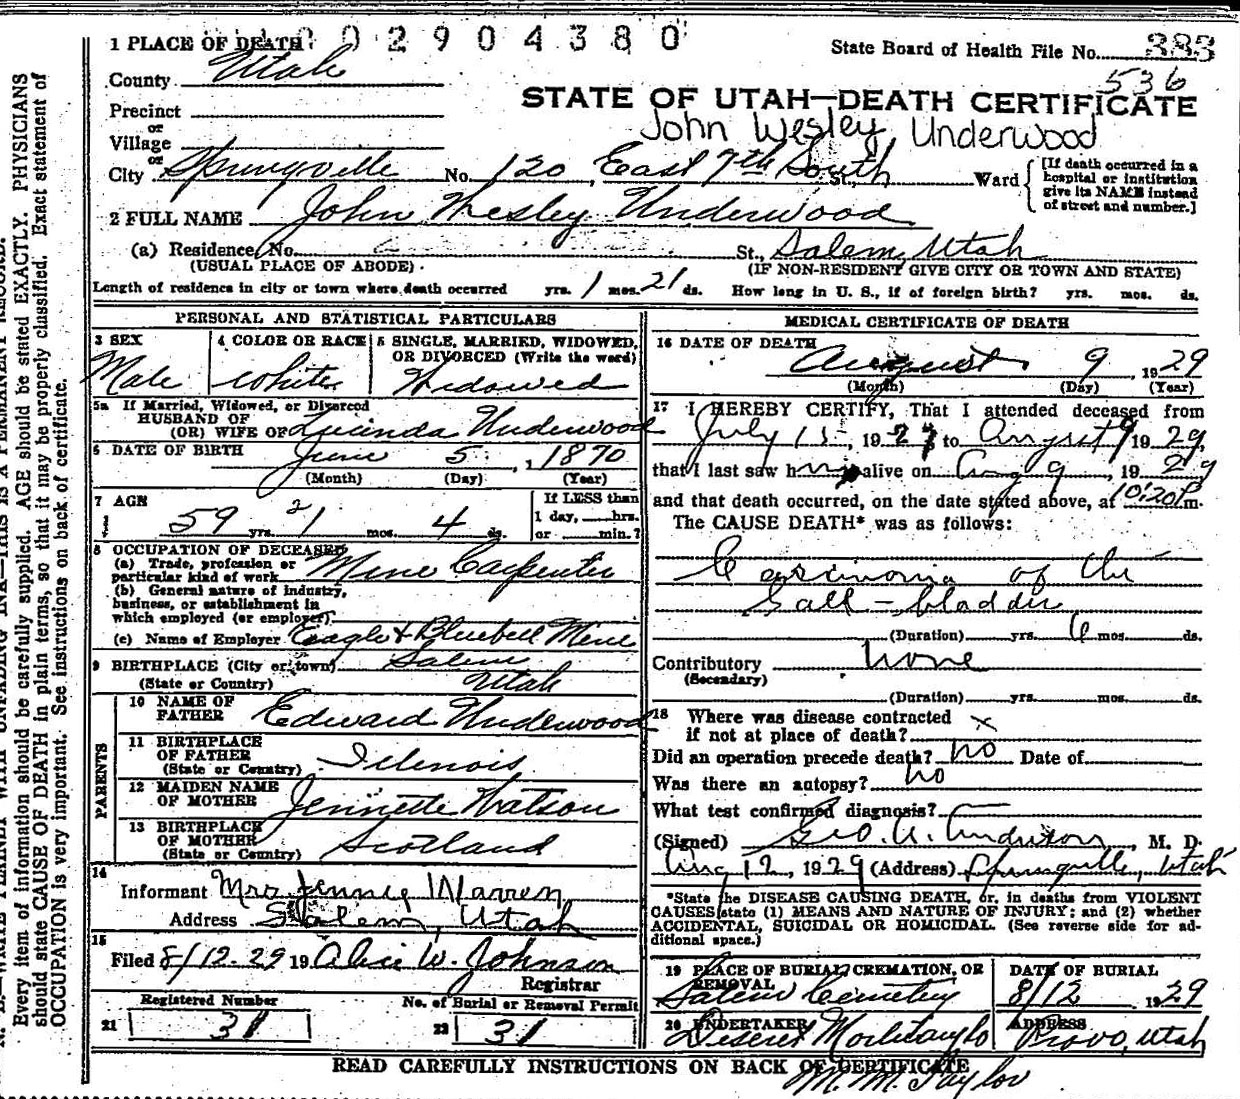 1 PLACE OF DEATH 002904380
State Board of Health File No. 383
536
County Utah
STATE OF UTAH—DEATH CERTIFICATE
Precinct
or
Village
or
John Wesley Underwood
City Springville No. 120, East 7th South St., Ward
[If death occurred in a
hospital or institution
give its NAME instead
of street and number.]
2 FULL NAME John Wesley Underwood
(a) Residence, No. St., Salem, Utah
(USUAL PLACE OF ABODE) (IF NON-RESIDENT GIVE CITY OR TOWN AND STATE)
Length of residence in city or town where death occurred yrs. 1 mos. 21 ds. How long in U. S., if of foreign birth? yrs. mos. ds.
PERSONAL AND STATISTICAL PARTICULARS
3 SEX Male
4 COLOR OR RACE White
5 SINGLE, MARRIED, WIDOWED,
OR DIVORCED (Write the word)
Widowed
5a If Married, Widowed, or Divorced
HUSBAND OF
(OR) WIFE OF Lucinda Underwood
6 DATE OF BIRTH June 5, 1870
(Month) (Day) (Year)
7 AGE 59 yrs. 2 mos. 4 ds.
If LESS than
1 day, hrs.
or min.?
8 OCCUPATION OF DECEASED
(a) Trade, profession or
particular kind of work Mine Carpenter
(b) General nature of industry,
business, or establishment in
which employed (or employer)
(c) Name of Employer Eagle & Bluebell Mine
9 BIRTHPLACE (City or town) Salem
(State or Country) Utah
PARENTS
10 NAME OF
FATHER Edward Underwood
11 BIRTHPLACE
OF FATHER
(State or Country) Ilenois
12 MAIDEN NAME
OF MOTHER Jennette Watson
13 BIRTHPLACE
OF MOTHER
(State or Country) Scotland
14
Informant Mrs. Jennie Warren
Address Salem, Utah
15
Filed 8/12-29 19 Alice W. Johnson
Registrar
Registered Number
21 31
No. of Burial or Removal Permit
22 31
MEDICAL CERTIFICATE OF DEATH
16 DATE OF DEATH
August 9, 1929
(Month) (Day) (Year)
17 I HEREBY CERTIFY, That I attended deceased from
July 15, 1929 to August 9 1929,
that I last saw him alive on Aug 9, 1929
and that death occurred, on the date stated above, at 10:20 P.m.
The CAUSE DEATH* was as follows:
Carcinomia of the
Gall-bladder
(Duration) yrs. 6 mos. ds.
Contributory none
(Secondary)
(Duration) yrs. mos. ds.
18 Where was disease contracted
if not at place of death? x
Did an operation precede death? no Date of
Was there an autopsy? no
What test confirmed diagnosis?
(Signed) Geo. A. Anderson, M. D.
Aug 12, 1929 (Address) Springville, Utah
*State the DISEASE CAUSING DEATH, or, in deaths from VIOLENT
CAUSES state (1) MEANS AND NATURE OF INJURY; and (2) whether
ACCIDENTAL, SUICIDAL OR HOMICIDAL. (See reverse side for ad-
ditional space.)
19 PLACE OF BURIAL, CREMATION, OR
REMOVAL
Salem Cemetery
DATE OF BURIAL
8/12, 1929
20 UNDERTAKER
Deseret Mort
ADDRESS
Provo, Utah
READ CAREFULLY INSTRUCTIONS ON BACK OF CERTIFICATE
M. M. Taylor
Every item of information should be carefully supplied. AGE should be stated EXACTLY. PHYSICIANS
should state CAUSE OF DEATH in plain terms, so that it may be properly classified. Exact statement of
OCCUPATION is very important. See instructions on back of certificate.